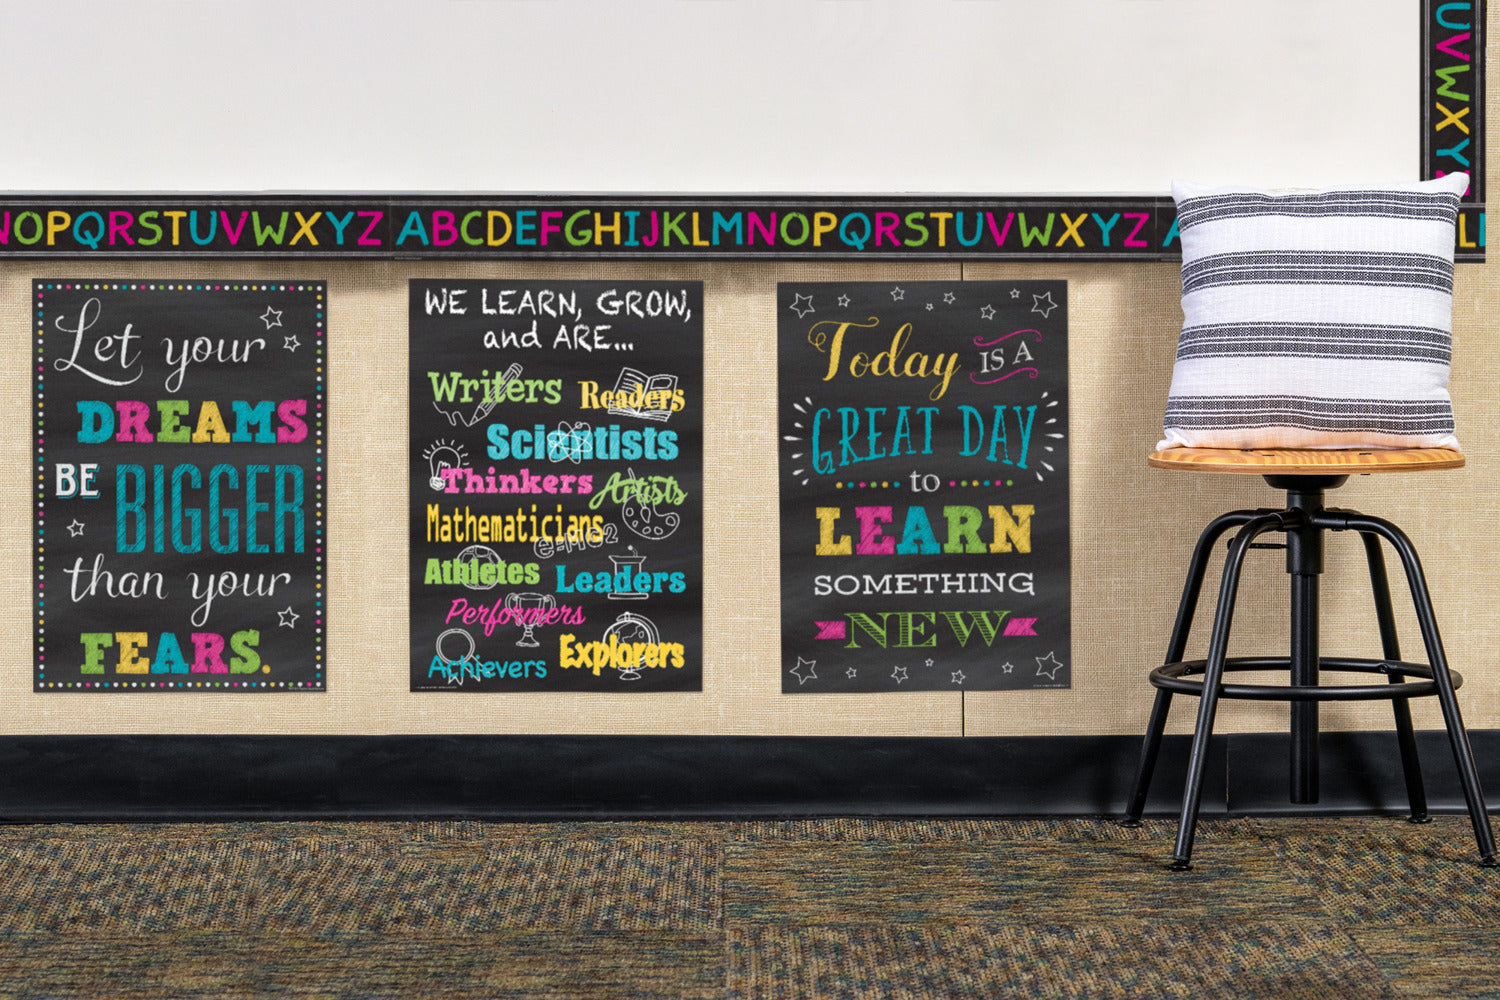 NOPQRSTUVWXYZ ABCDEFGHIJKLMNOPQRSTUVWXYZ
UVWXYZ
Let your
DREAMS
BE BIGGER
than your
FEARS.
WE LEARN, GROW,
and ARE...
Writers Readers
Scientists
Thinkers Artists
Mathematicians
e=mc2
Athletes Leaders
Performers
Explorers
Achievers
Today IS A
GREAT DAY
to
LEARN
SOMETHING
NEW